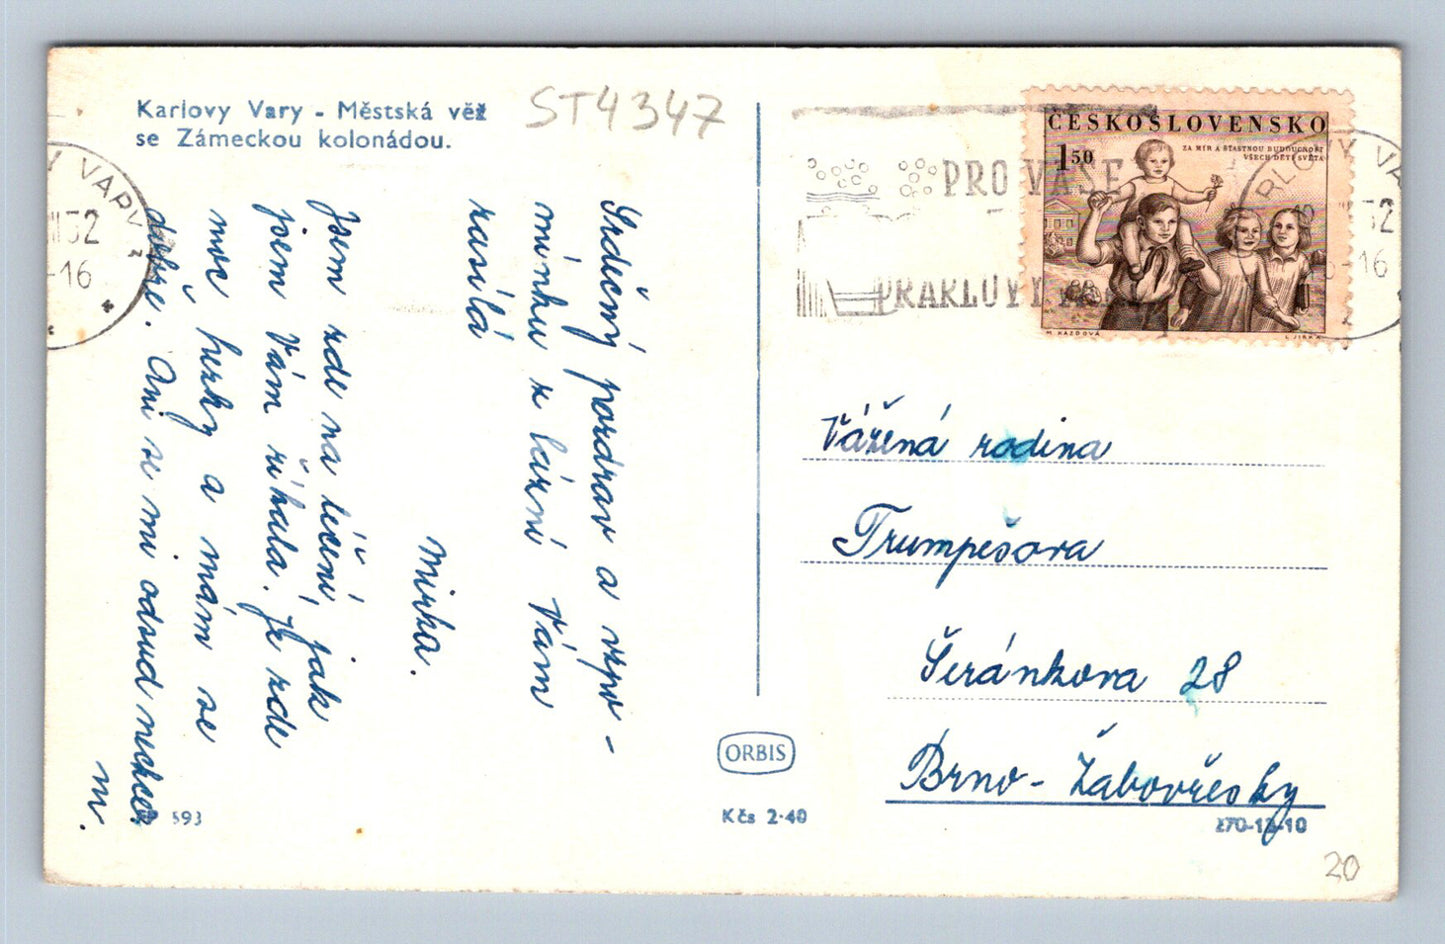 Karlovy Vary - Městská věž
se Zámeckou kolonádou.
ST4347
Srdečný pozdrav a vzpo-
mínku z lázní Vám
zasílá
Mirka.
Jsem zde na léčení, jak
jsem Vám říkala. Je zde
moc hezky a mám se
dobře. Ani se mi odsud nechce.
M.
593
ORBIS
Kčs 2·40
Y VARY
52
-16
PRO VAŠE
ČESKOSLOVENSKO
1 50
ZA MÍR A ŠŤASTNOU BUDOUCNOST
VŠECH DĚTÍ SVĚTA
L. JIRKA
52
-16
Vážená rodina
Trumpešova
Šeránkova 28
Brno - Žabovřesky
20